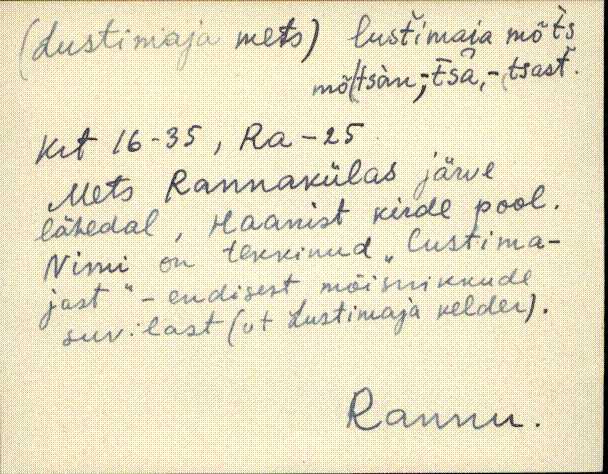 (Lustimaja mets) lustimaja mõts
mõtsàn, -tsà, -tsast.
Krt 16-35, Ra-25
Mets Rannakülas järve
lähedal, Haanist kirde pool.
Nimi on tekkinud „lustima-
jast" - endisest mõisnikkude
suvilast (vt Lustimaja kelder).
Rannu.